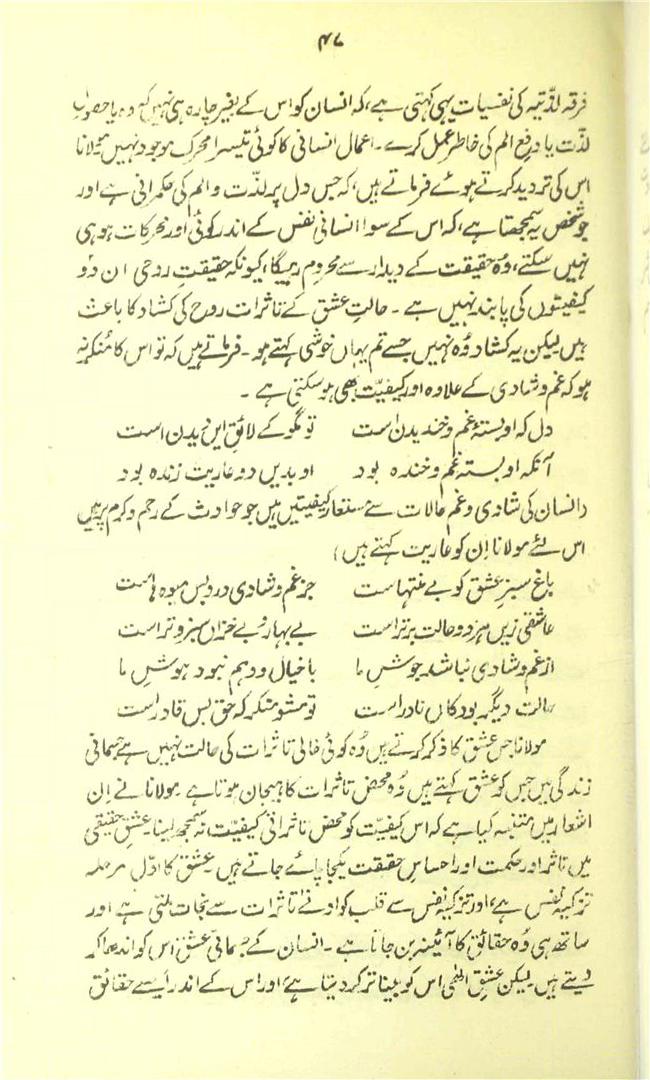 ۴۷
فرقہ لذتیہ کی نفسیات یہی کہتی ہے، کہ انسان کو اس کے بغیر چارہ ہی نہیں کہ وہ یا حصولِ
لذّت یا دفعِ الم کی خاطر عمل کرے۔ اعمال انسانی کا کوئی تیسرا محرک موجود نہیں مولانا
اس کی تردید کرتے ہوئے فرماتے ہیں، کہ جس دل پر لذّت و الم کی حکمرانی ہے اور
جو شخص یہ سمجھتا ہے، کہ اس کے سوا انسانی نفس کے اندر کوئی اور محرکات ہو ہی
نہیں سکتے، وُہ حقیقت کے دیدار سے محروم رہیگا، کیونکہ حقیقتِ روحی ان دو
کیفیتوں کی پابند نہیں ہے۔ حالتِ عشق کے تاثرات روح کی کشاد کا باعث
ہیں لیکن یہ کشاد وُہ نہیں جسے تم یہاں خوشی کہتے ہو۔ فرماتے ہیں کہ تو اس کا مُنکر نہ
ہو کہ غم و شادی کے علاوہ اور کیفیّت بھی ہو سکتی ہے۔
دل کہ او بستۂ غم و خندیدن است تو مگو کے لائقِ ایں دیدن است
آنکہ او بستہ غم و خندہ بود او بدیں دو عاریت زندہ بود
(انسان کی شادی و غم حالات سے مستعار کیفیتیں ہیں جو حوادث کے رحم و کرم پر ہیں
اس لئے مولانا اِن کو عاریت کہتے ہیں)
باغ سبزِ عشق کو بے منتہاست جز غم و شادی درو بس میوہ ہاست
عاشقی زیں ہر دو حالت برتر است بے بہار و بے خزاں سبز و تر است
از غم و شادی نباشد جوشِ ما با خیال و وہم نبود ہوشِ ما
حالت دیگر بود کاں نادر است تو مشو منکر کہ حق بس قادر است
مولانا جس عشق کا ذکر کرتے ہیں وُہ کوئی خالی تاثرات کی حالت نہیں ہے جسمانی
زندگی میں جس کو عشق کہتے ہیں وُہ محض تاثرات کا ہیجان ہوتا ہے۔ مولانا نے اِن
اشعار میں متنبہ کیا ہے کہ اس کیفیت کو محض تاثراتی کیفیّت، نہ سمجھ لینا۔ عشقِ حقیقی
میں تاثر اور حکمت اور احساسِ حقیقت یکجا پائے جاتے ہیں۔ عشق کا اوّل مرحلہ
تزکیۂ نفس ہے، اور تزکیۂ نفس سے قلب کو ادنےٰ تاثرات سے نجات ملتی ہے اور
ساتھ ہی وُہ حقائق کا آئینہ بن جاتا ہے۔ انسان کے جسمانی عشق اس کو اندھا کر
دیتے ہیں لیکن عشقِ الٰہی اس کو بینا تر کر دیتا ہے، اور اس کے اندر ایسے حقائق